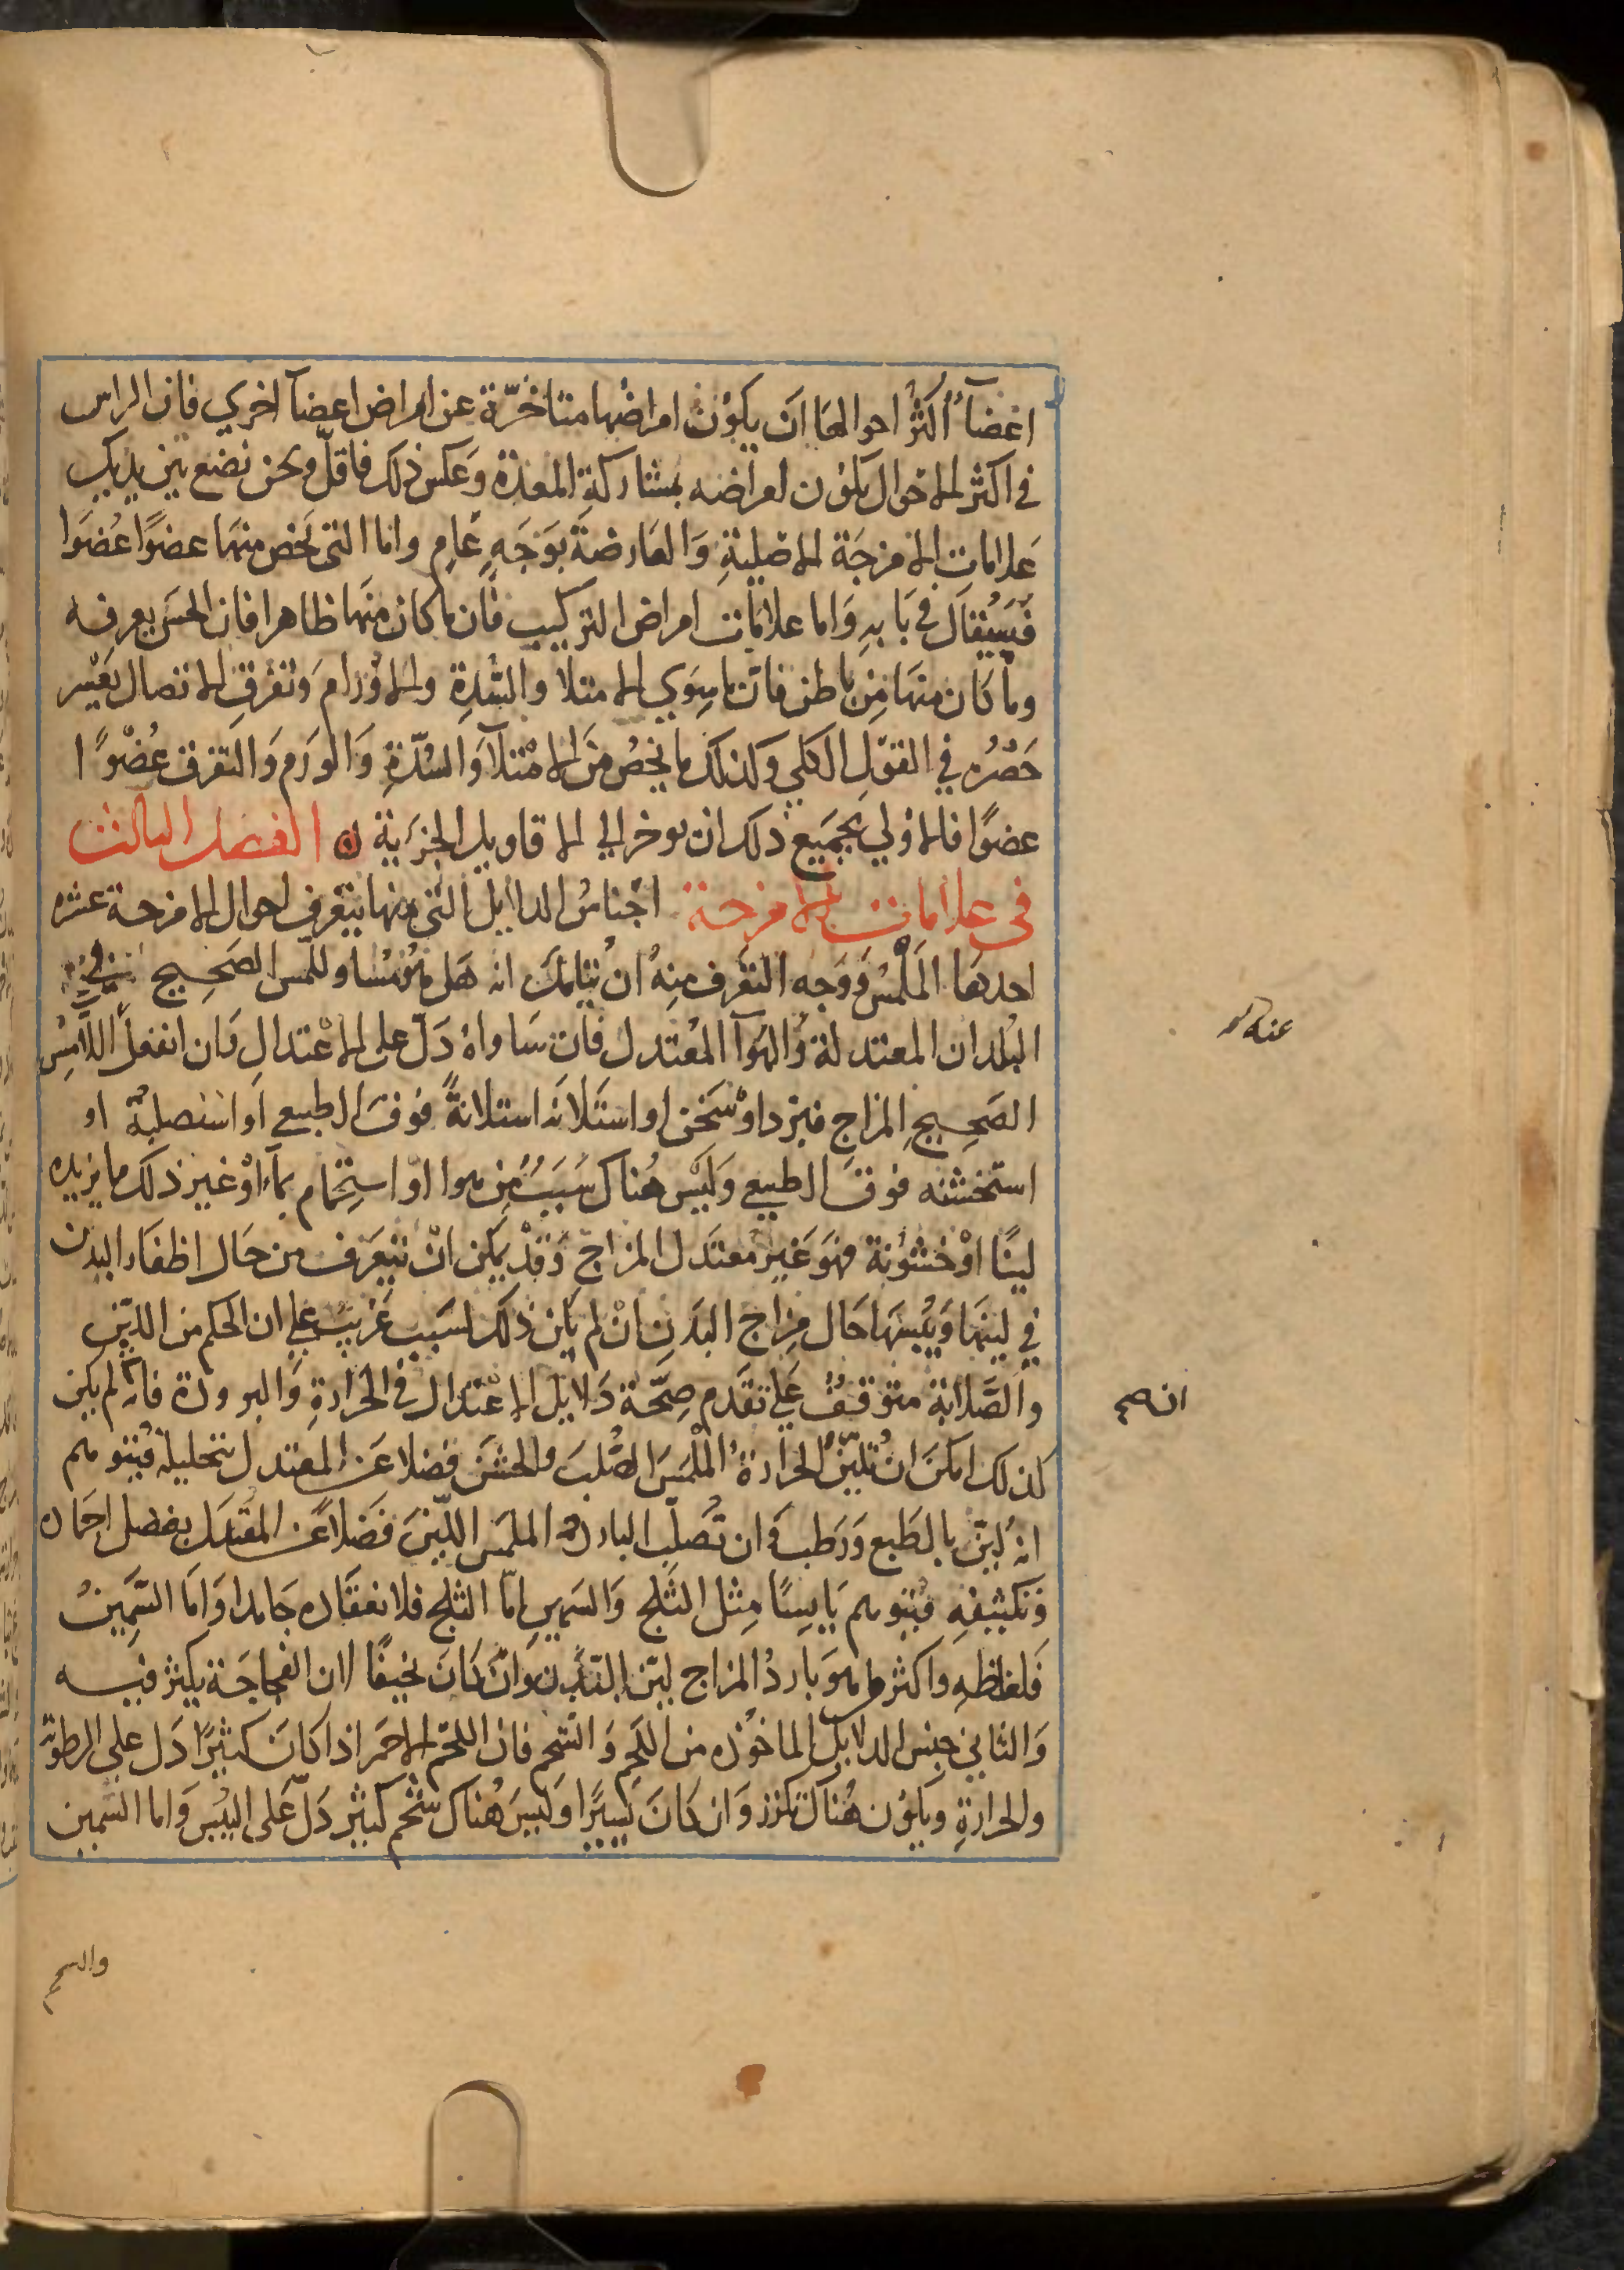 اعضآءٌ اكثرُ احوالها ان يكونَ امراضُها متاخرّة عن امراض اعضآ اخري فان الراس
في اكثر الاحوال يكون امراضه بمشاركةِ المعدة وَعكس ذلك فاقلّ ونحن نضع بين يديك
عَلامات الامزجَة الاصليةِ وَالعَارضةَ بوَجَهٍ عَامٍ واما التى تخص منهَا عضوًا عُضوًا
فَسَيُقالَ في بَابهِ وَاما علامَات امراض التركيب فان ما كان منهَا ظاهرا فان الحسَ يعرفه
وما كان منهَا مِن باطن فانّ ما سِوَي الامتلا والسّدةِ والاوْرام وَتفرق الاتصال يَعْسر
حَصْرُه في القوْلِ الكلي وكذلك ما يخصُ مِنَ الامْتلآ وَالسُدّةِ وَالوَرَم وَالتفرق عُضْوًا
عضوًا فالاولي بجميَع ذلك ان يوخر الي الاقاويل الجزَيةِ ۞ الفصل الثالث
في علامات الامزجة اجْناسُ الدلايل التى منها يتعرف احوال الامزجة عشره
احدهَا المَلْمَسُ وَوَجه التعَرف مِنهُ ان يتامّل انه هَل هوَ مُسَاو للّمس الصَحِيح في
البُلدان المعتدلة وَالهَوآ المعُتدل فان سَاواهُ دَلّ على الاعْتدالِ وَان انفعَلَ اللّامِسُ
الصَحِيحِ المزاجِ فبرد اوْ سَخن او استَلانَه استلانةً فوق الطبيعي اَو استصلبهُ او
استَخشنه فوقَ الطبيعي وَلَيْس هُناك سَبَبٌ مِن هوا اوْ استِحْمام بمآءٍ اوْ غير ذلك ما يزيده
لينًا اوْ خشوُنة فهوَ غَير معتَدل المزاجِ وَقدْ يمكن انّ يتعَرف من حَال اظفَاءِ البدن
في لينهَا وَيُبْسِهَا حَال مِزاج البَدنِ انْ لم يكن ذلك لسَببٍ غَريبٍ علي ان الحكم من اللّين
والصَّلابةِ متوقفٌ عَلي تقدم صِحّة دَلايل الاعْتدال في الحرَارةِ وَالبرودة فانه لم يكن
كذلك امكنَ انْ تُليّنَ الحرارةُ المَلْمَسَ الصُّلبَ والخشنَ فضلا عَن المعتدل بتحليلهِ فيُتوهم
انهُ ليّن بالطَبع وَرطب وَان تُصَلّب البارده الملمَس اللّيّنَ فَضلاً عَن المعْتدل بفضل اجمَاده
وَتكثيفِهِ فيُتوهم يَابِسًا مِثل الثلج وَالسَمين امّا الثلج فلانعقاده جَامدا وَامَا السَّمِينُ
فَلغلظهِ واكثر ما هوَ باردُ المزاج ليّن البَدن وَان كانَ نحيفًا لان الفجاجَة يكثر فيه
وَالثاني جنِس الدلايلَ الماخوُذه من اللّحم وَالشحم فان اللحّم الاحمَر اذا كانَ كثيرًا دَل علي الرطوبة
والحرارةِ ويكوُن هُناك تَلزز وَان كانَ يَسيرًا وَليسَ هُناك شحم كثير دَلّ عَلي اليُبْسَ وَاما السّمين
عنه
ان صح
والسحم